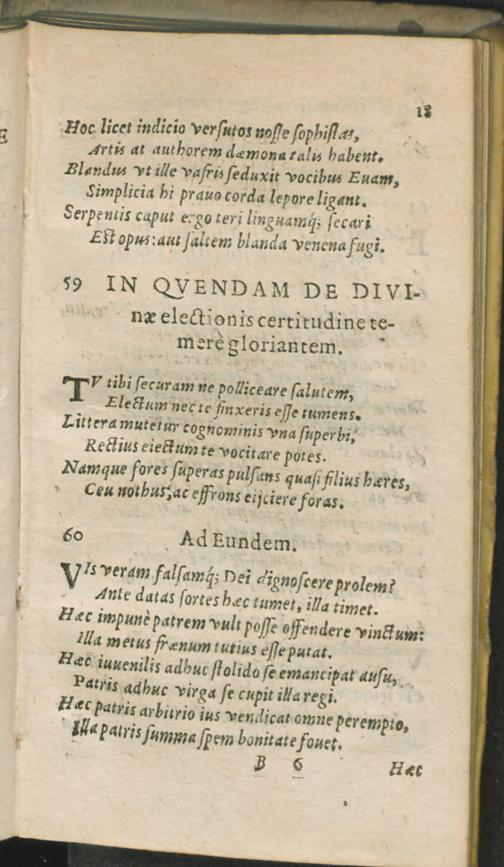 18
Hoc licet indicio verſutos noſſe ſophiſtas,
Artis at authorem dæmona talis habent.
Blandus vt ille vafris ſeduxit vocibus Euam,
Simplicia hi prauo corda lepore ligant.
Serpentis caput ergo teri linguamq́; ſecari
Eſt opus: aut ſaltem blanda venena fugi.
59 IN QVENDAM DE DIVI-
næ electionis certitudine te-
merè gloriantem.
TV tibi ſecuram ne polliceare ſalutem,
Electum nec te finxeris eſſe tumens.
Littera mutetur cognominis vna ſuperbi,
Rectius eiectum te vocitare potes.
Namque fores ſuperas pulſans quaſi filius hæres,
Ceu nothus, ac effrons eijciere foras.
60 Ad Eundem.
VIs veram falſamq́; Dei dignoſcere prolem?
Ante datas ſortes hæc tumet, illa timet.
Hæc impunè patrem vult poſſe offendere vinctum:
Illa metus frænum tutius eſſe putat.
Hæc iuuenilis adhuc ſtolido ſe emancipat auſu,
Patris adhuc virga ſe cupit illa regi.
Hæc patris arbitrio ius vendicat omne perempto,
Illa patris ſumma ſpem bonitate fouet.
B 6 Hæc